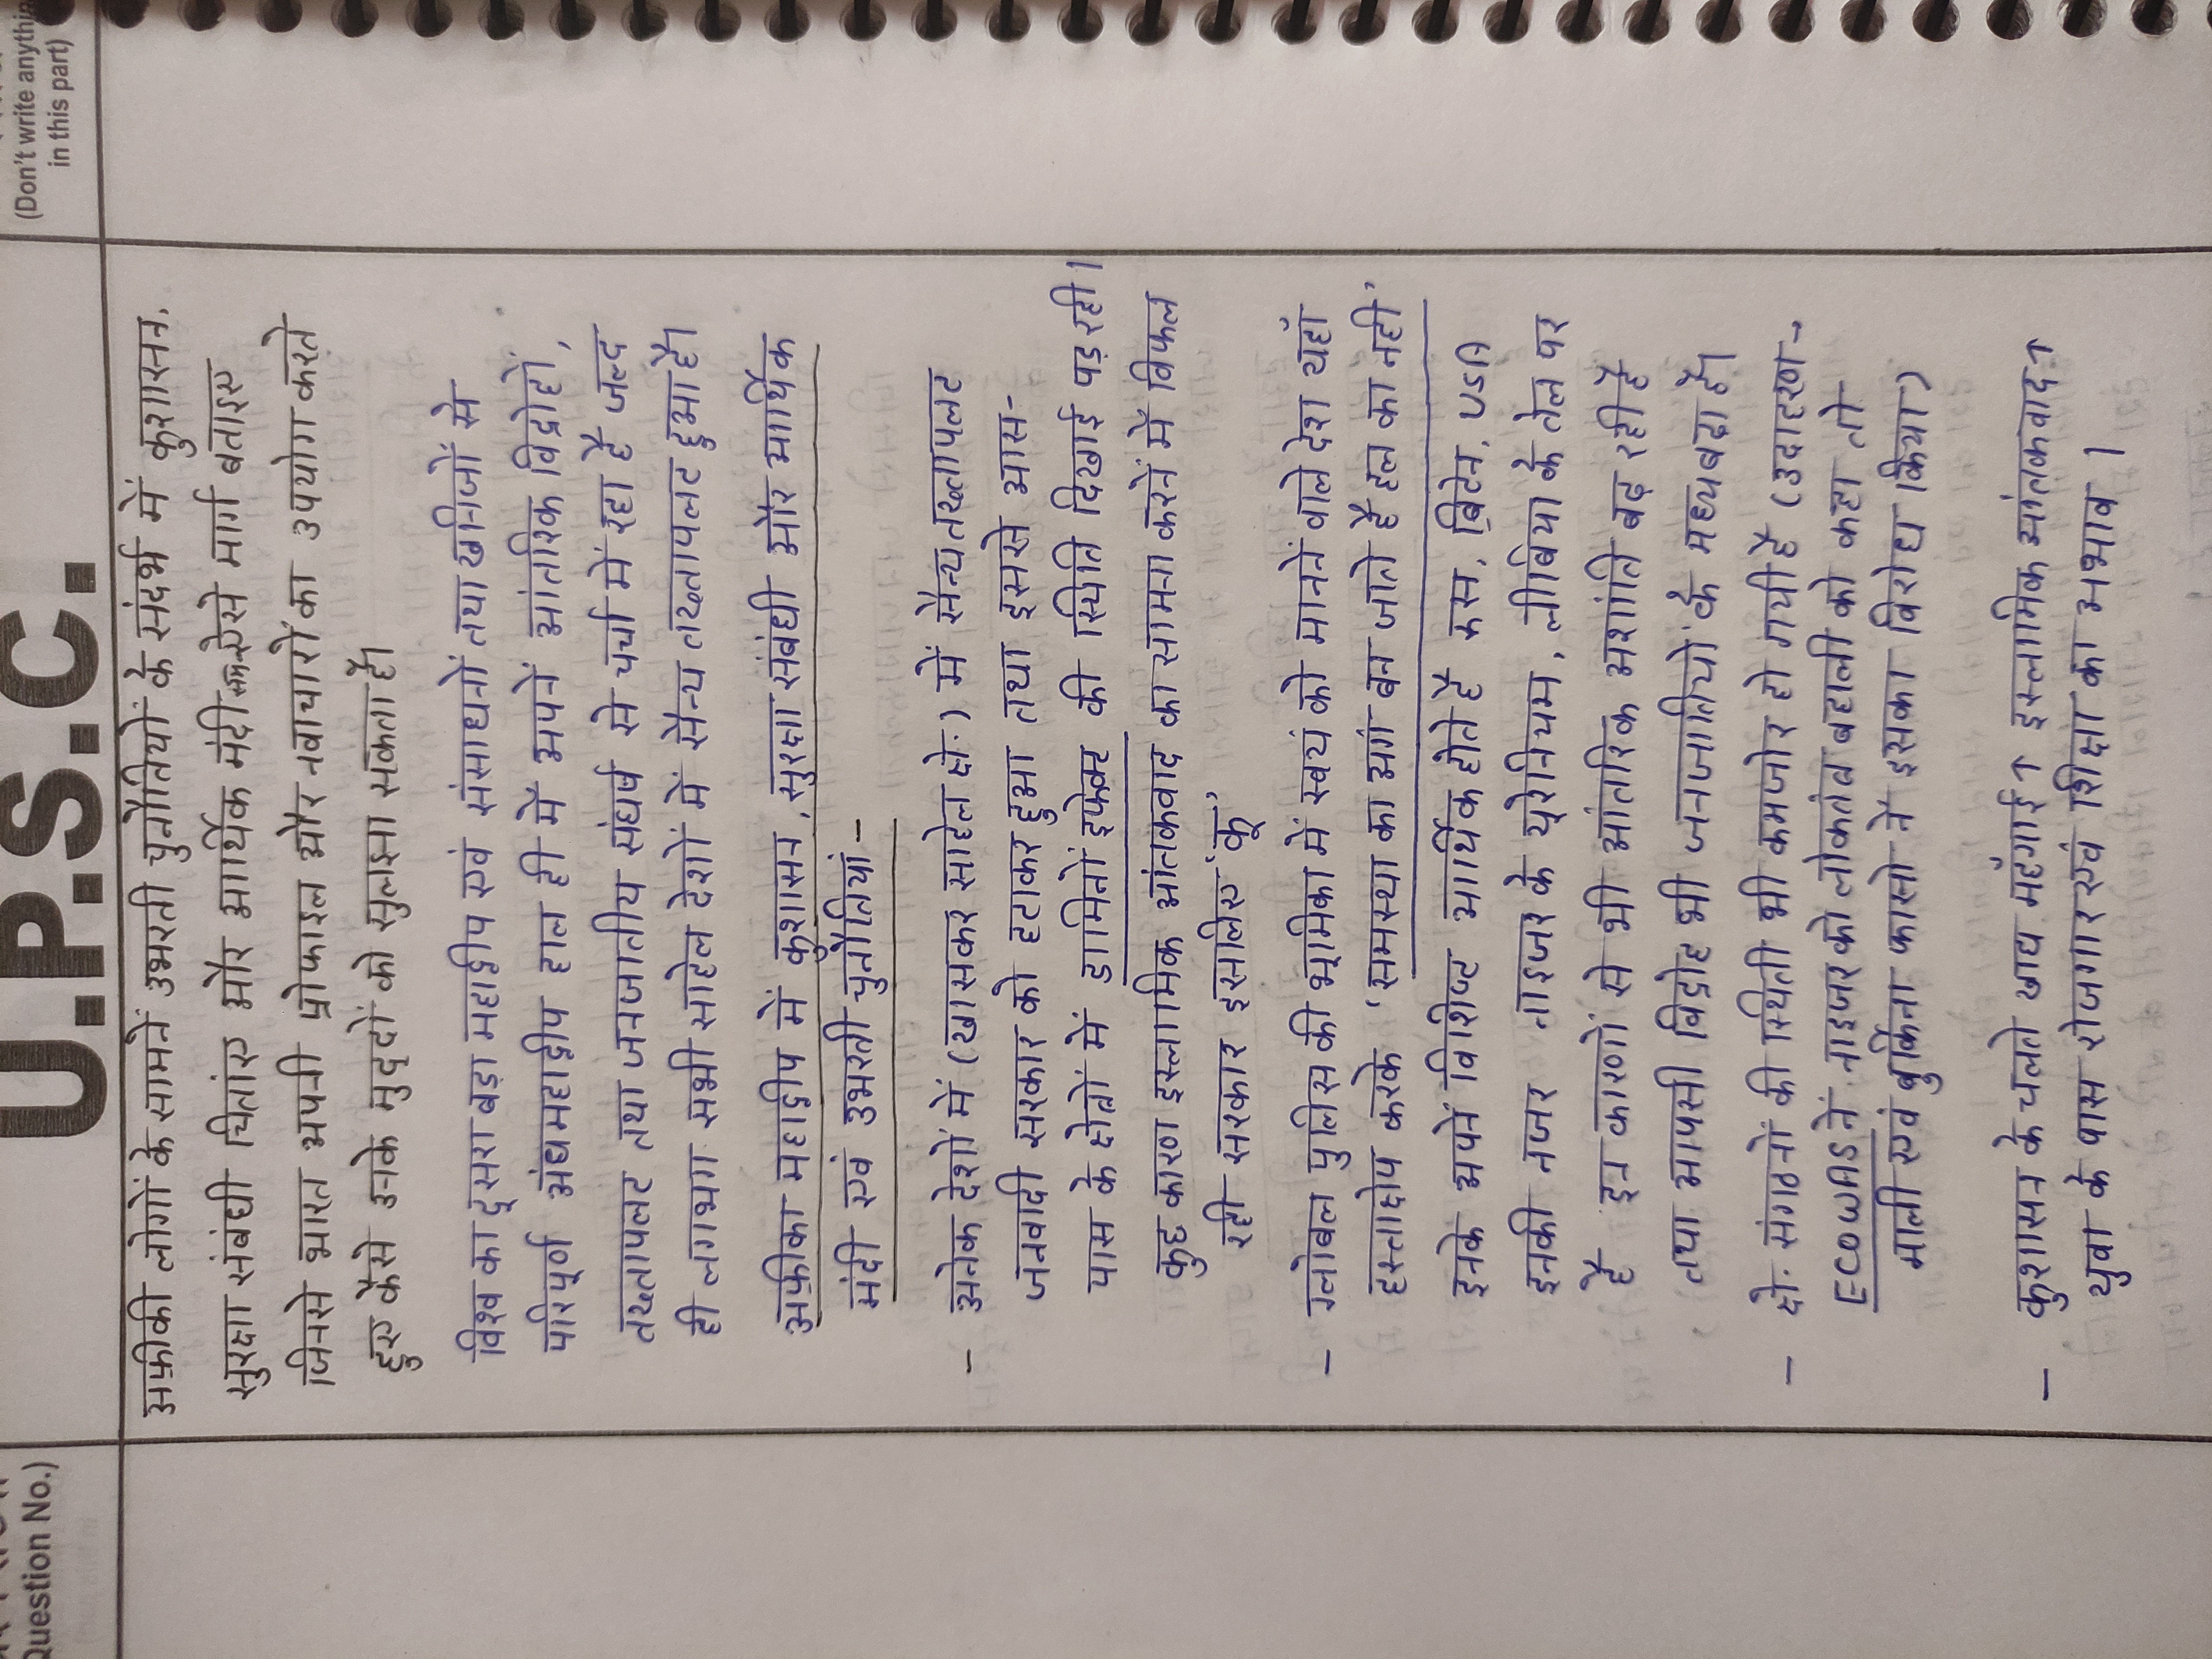 U.P.S.C.
Question No.)
(Don't write anything
in this part)
अफ्रीकी लोगों के सामनें उभरती चुनौतियों के संदर्भ में कुशासन,
सुरक्षा संबंधी चिंताए और आर्थिक मंदी ऐसे मार्ग बताइए
जिनसे भारत अपनी प्रोफाइल और नवाचारों का उपयोग करते
हुए कैसे उनके मुद्दों को सुलझा सकता है।
विश्व का दूसरा बड़ा महाद्वीप एवं संसाधनों तथा खनिजों से
परिपूर्ण अंधमहाद्वीप हाल ही में अपनें आंतरिक विद्रोहों,
तख्तापलट तथा जनजातीय संघर्ष से चर्चा में रहा है जल्द
ही लगभग सभी साहेल देशों में सैन्य तख्तापलट हुआ है।
अफ्रीका महाद्वीप में कुशासन, सुरक्षा संबंधी और आर्थिक
मंदी एवं उभरती चुनौतियां-
- अनेक देशों में (खासकर साहेल क्षे.) में सैन्य तख्तापलट
जनवादी सरकार को हटाकर हुआ तथा इससे आस-
पास के क्षेत्रों में डामिनों इफेक्ट की स्थिति दिखाई पड़ रही।
कुछ कारण इस्लामिक आंतकवाद का सामना करनें में विफल
रही सरकार इसलिए 'कू'
- ग्लोबल पुलिस की भूमिका में स्वयं को माननें वाले देश यहाँ
हस्ताक्षेप करके 'समस्था का अगं बन जाते है हल का नही'
इनके अपनें विशिष्ट आर्थिक होते है रूस, ब्रिटेन, USA
इनकी नजर नाइजर के यूरेनियम, लीबिया के तेल पर
है इन कारणों से भी आंतरिक अशांति बढ़ रही है
तथा आपसी विद्रोह भी जनजातियों के मध्य बढ़ा है।
- क्षे. संगठनों की स्थिती भी कमजोर हो गयी है (उदाहरण→
ECOWAS नें नाइजर को लोकतंत्र बहाली को कहा तो
माली एवं बुर्किना फासो नें इसका विरोध किया)
- कुशासन के चलते खाद्य महँगाई↑ इस्लामिक आंतकवाद↑
युवा के पास रोजगार एवं शिक्षा का अभाव।